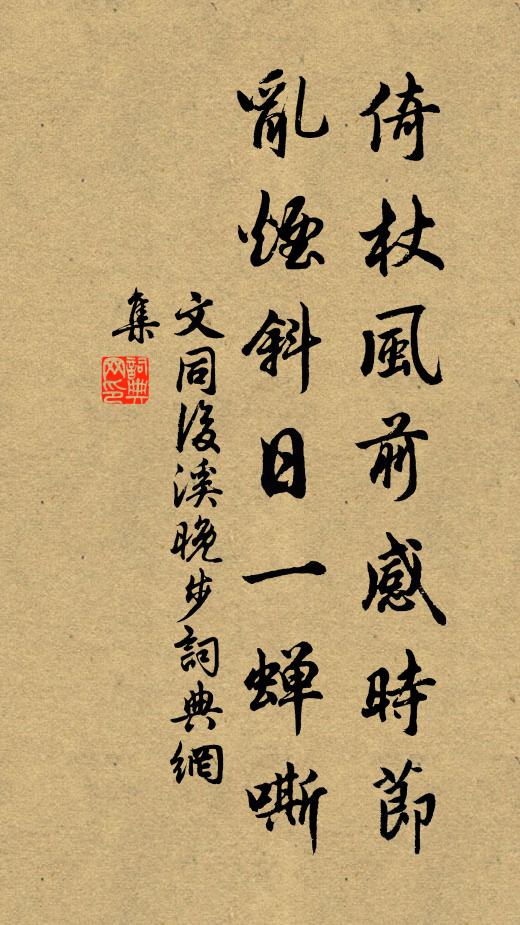 倚杖風前感時節
亂煙斜日一蟬嘶
文同後溪晚步詞典網
集
詞典
网印